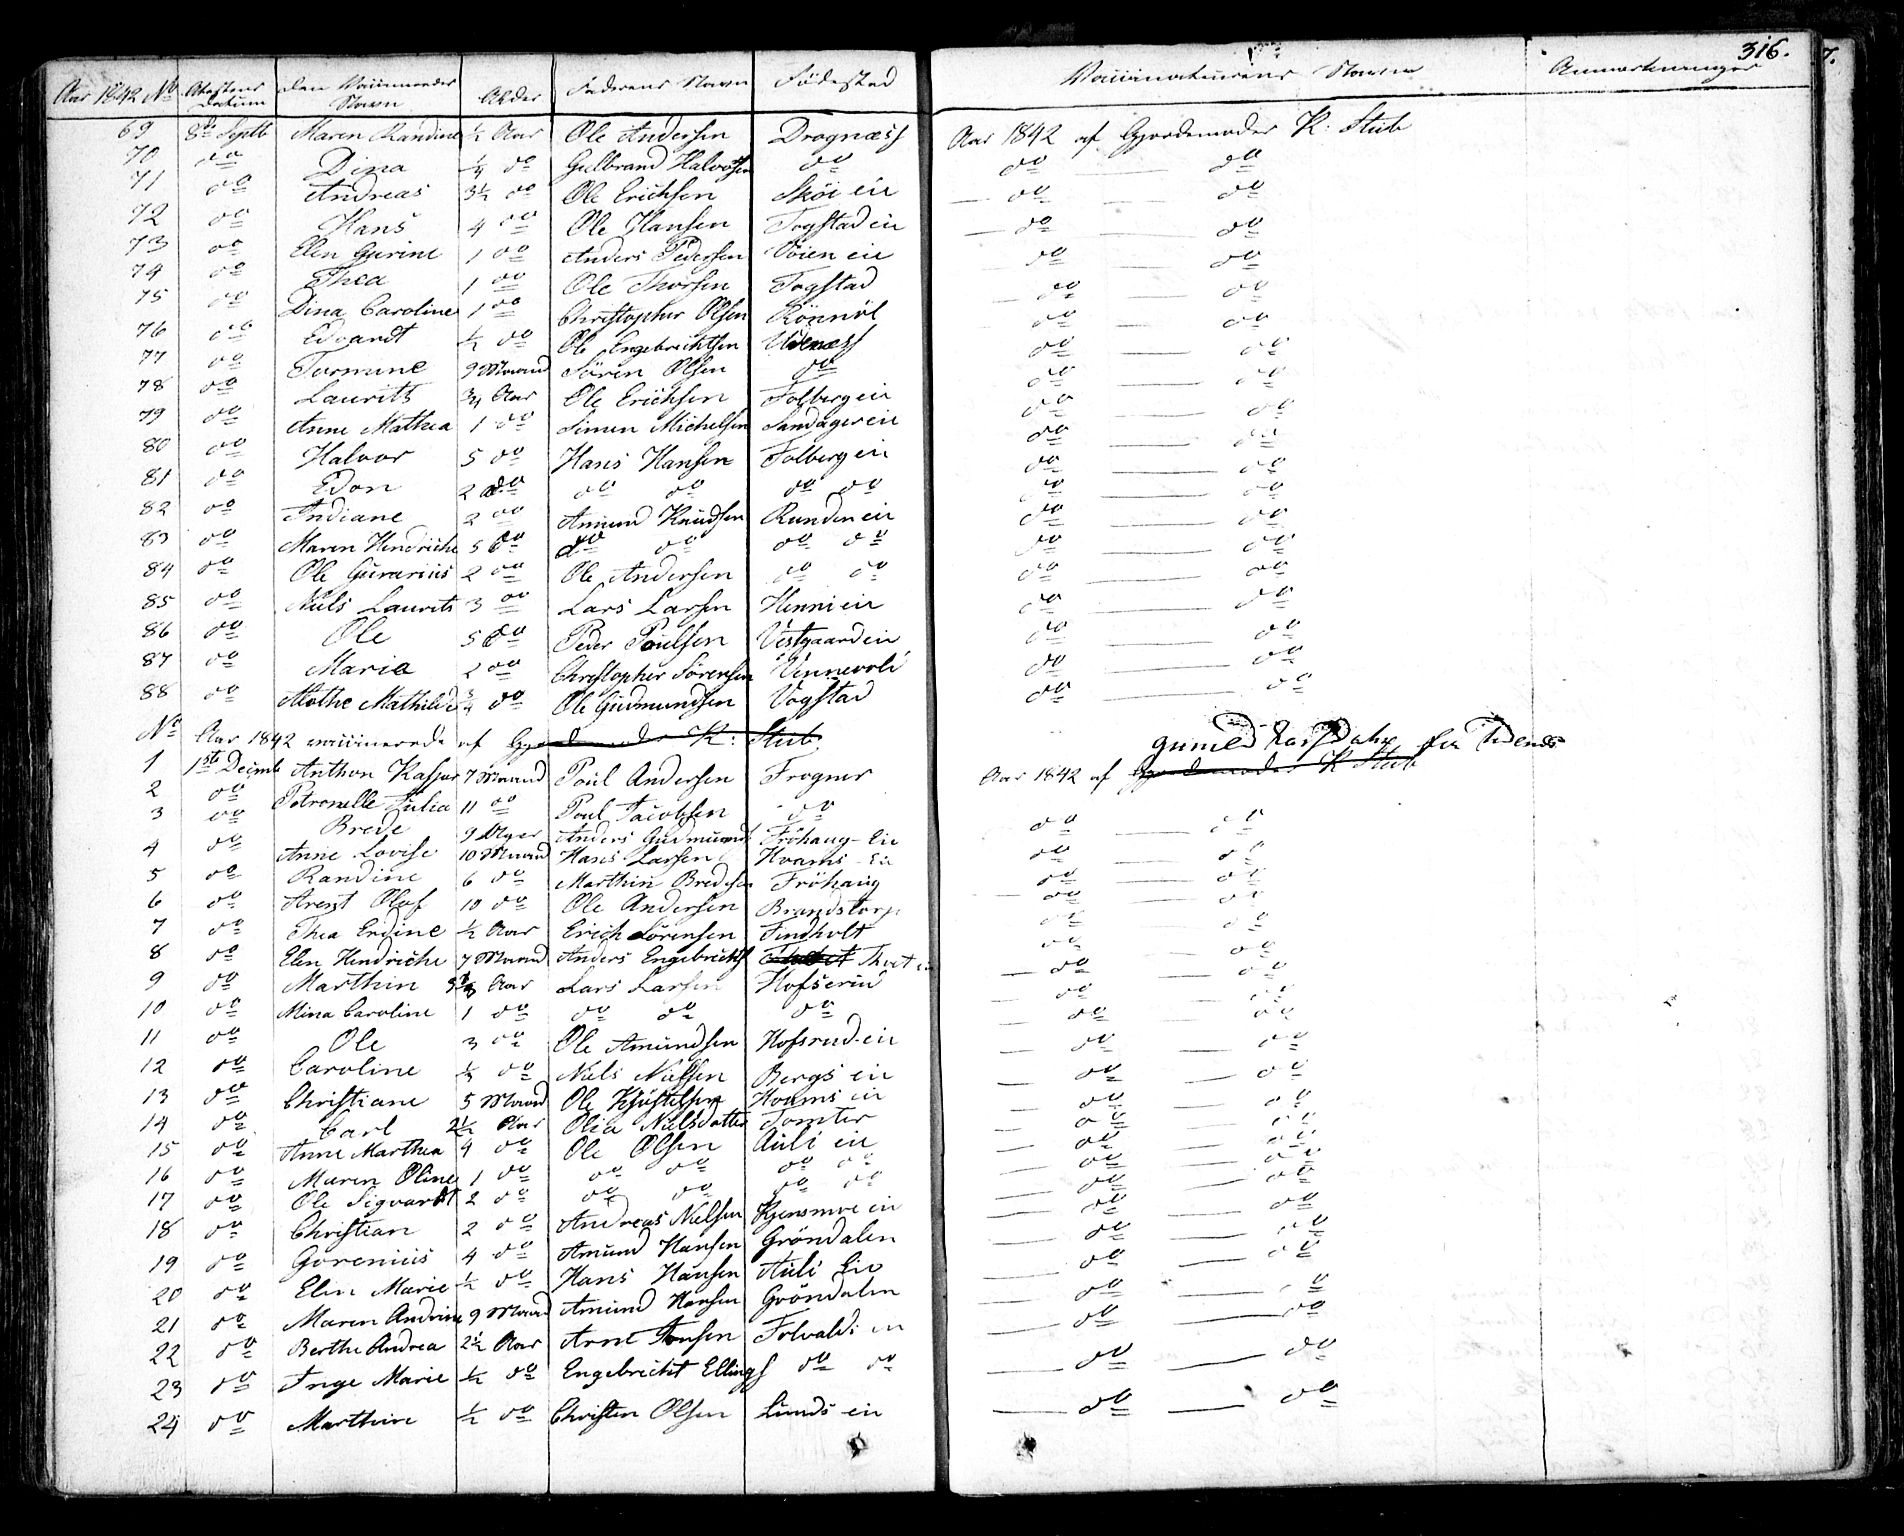 316.
Aar 1842 No Attestens Datum Den Vaccineredes Navn Alder Faderens Navn Fødested Vaccinateurens Navn Anmærkninger
69 8de Septb Maren Randine ½ Aar Ole Andersen Dragnæss Aar 1842 af Gjordemoder K: Stub
70 do Dina ¼ do Gulbrand Halvorsen do do do
71 do Andreas 3½ do Ole Erichsen Skøi eie do do
72 do Hans 4 do Ole Hansen Fogstad eie do do
73 do Elen Gurine 1 do Anders Pedersen Vøien eie do do
74 do Thea 1 do Ole Thorsen Fogstad do do
75 do Dina Caroline 1 do Christopher Olsen Rønnøl do do
76 do Edvardt ½ do Ole Engebrechtsen Udenæss do do
77 do Tormine 9 Maaned Søren Olsen do do do
78 do Laurits ¾ Aar Ole Erichsen Folberg eie do do
79 do Anne Mathea 1 do Simen Michelsen Sandager eie do do
80 do Halvor 5 do Hans Hansen Folberg eie do do
81 do Edon 2 do do do do do do do
82 do Andiane 2 do Amund Knudsen Runden eie do do
83 do Maren Hendriche 5 do do do do do do do
84 do Ole Gunarius 2 do Ole Andersen do do do do
85 do Niels Laurits 3 do Lars Larsen Henni eie do do
86 do Ole 5 do Peder Poulsen Vestgaard eie do do
87 do Maria 2 do Christopher Sørensen Vinnevold do do
88 do Mathilde ¾ do Ole Gudmundsen Vogstad do do
No Aar 1842 vaccinerede af Gjordemoder K: Stub
1 1ste Decimb Anthon Kasper 7 Maaned Poul Andersen Frogner Aar 1842 af Gjordemoder K Stub
2 do Petronelle Julia 11 do Poul Jacobsen do do do
3 do Brede 9 Uger Anders Gudmunds Frøhaug-Eie do do
4 do Anne Lovise 10 Maaned Hans Larsen Hvams-Eie do do
5 do Randine 6 do Marthin Bredesen Frøhaug do do
6 do Arent Olaf 10 do Ole Andersen Brandstorp do do
7 do Thea Erdine ½ Aar Erich Sørensen Findholt do do
8 do Elen Hendriche 7 Maaned Anders Engebrechts Thvet eie do do
9 do Marthin Aar Lars Larsen do do
10 do Mina Caroline 1 do do do do do do
11 do Ole 3 do Ole Amundsen Hofsrud-eie do do
12 do Caroline do Niels Nielsen Bergs eie do do
13 do Christiane 5 Maaned Ole Kjøstelsen Hvams eie do do
14 do Carl 2½ Aar Olia Nielsdatter Tomter do do
15 do Anne Marthea 4 do Ole Olsen Auli eie do do
16 do Maren Oline 1 do do do do do do do
17 do Ole Sigvardt 2 do do do do do do do
18 do Christian 2 do Andreas Nielsen Kjensmoe eie do do
19 do Gorenius 4 do Amund Hansen Grøndalen do do
20 do Elen Marie ½ do Hans Hansen Auli Eie do do
21 do Maren Andrine 9 Maaned Amund Hansen Grøndalen do do
22 do Berthe Andrea 2½ Aar Arne Jensen Folvald eie do do
23 do Inge Marie ½ do Engebrecht Ellings do do do do
24 do Marthine ½ do Christen Olsen Lunds eie do do